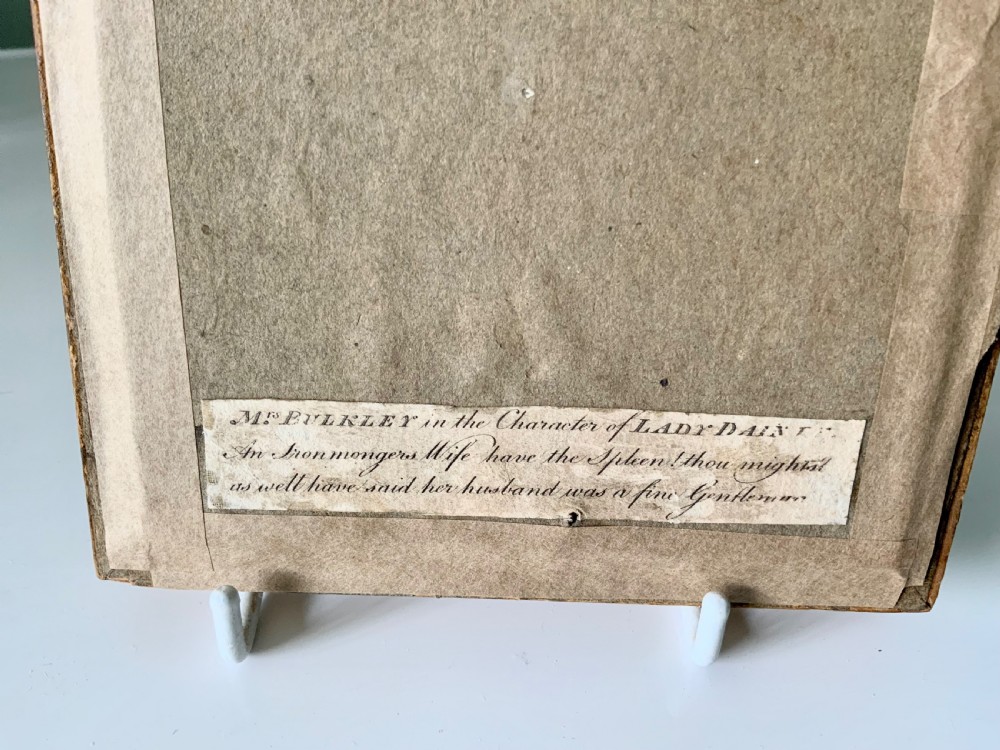 Mrs BULKLEY in the Character of LADY DAINTY.
An Ironmongers Wife have the Spleen! thou mightst
as well have said her husband was a fine Gentleman